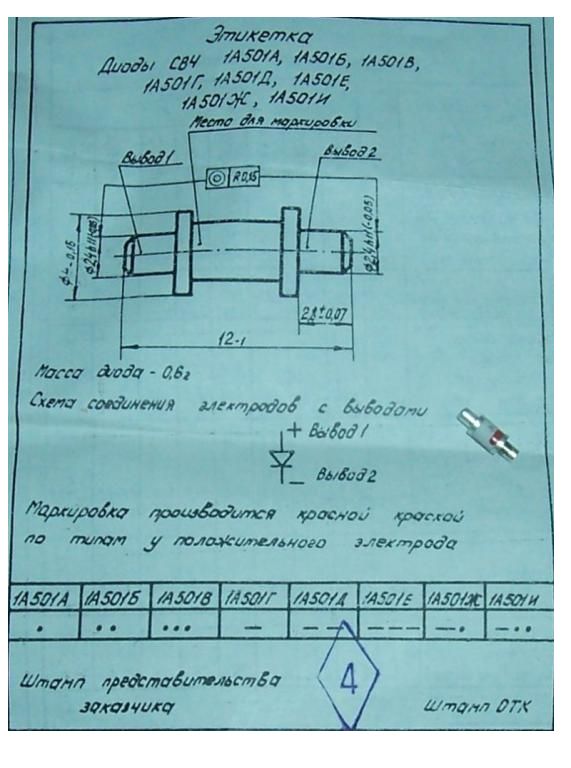 Этикетка
Диоды СВЧ 1А501А, 1А501Б, 1А501В,
1А501Г, 1А501Д, 1А501Е,
1А501Ж, 1А501И
Место для маркировки
Вывод 1
Вывод 2
◎ R0,15
ϕ4-0,16
ϕ2,4h11(-0,06)
ϕ2,4h11(-0,05)
2,8±0,07
12-1
Масса диода - 0,6г
Схема соединения электродов с выводами
+ Вывод 1
– Вывод 2
Маркировка производится красной краской
по типам у положительного электрода
1А501А 1А501Б 1А501В 1А501Г 1А501Д 1А501Е 1А501Ж 1А501И
• •• ••• — — — — — — —• —••
4
Штамп представительства
заказчика
Штамп ОТК